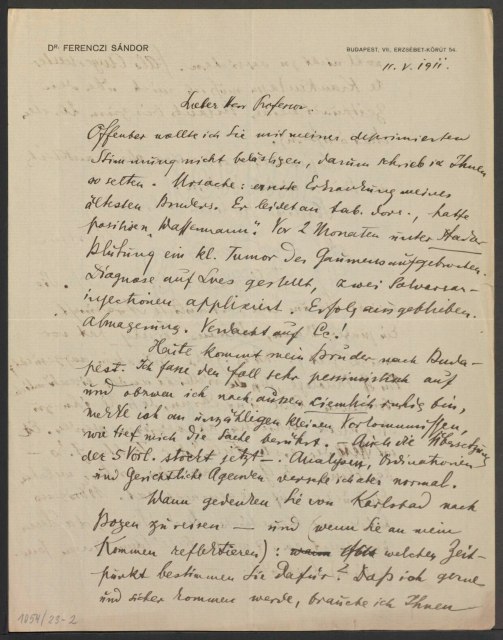 Dr. FERENCZI SÁNDOR
BUDAPEST, VII. ERZSÉBET-KÖRÚT 54.
11. V. 1911.
Lieber Herr Professor.
Offenbar wollte ich Sie mit meiner deprimierten
Stimmung nicht belästigen, darum schrieb ich Ihnen
so selten. Ursache: ernste Erkrankung meines
ältesten Bruders. Er leidet an tab. dors., hatte
positiven „Wassermann“. Vor 2 Monaten unter
Blutung ein kl. Tumor des Gaumens aufgebrochen.
Diagnose auf Lues gestellt, zwei Salvarsan-
injectionen appliziert. Erfolg ausgeblieben.
Abmagerung. Verdacht auf Cc!
Heute kommt mein Bruder nach Buda-
pest. Ich fasse den Fall sehr pessimistisch auf
und obzwar ich nach aussen ziemlich ruhig bin,
merke ich an unzähligen kleinen Vorkommnissen,
wie tief mich die Sache berührt. — Auch die Übersetzung
der 5 Vorl. stockt jetzt —. Analysen, Ordinationen
und Gerichtliche Agenden versehe ich aber normal.
Wann gedenken Sie von Karlsbad nach
Bozen zu reisen — und wenn Sie an mein
Kommen reflektieren): welchen Zeit-
punkt bestimmen Sie dafür? Daß ich gerne
und sicher kommen werde, brauche ich Ihnen
1054/23-2